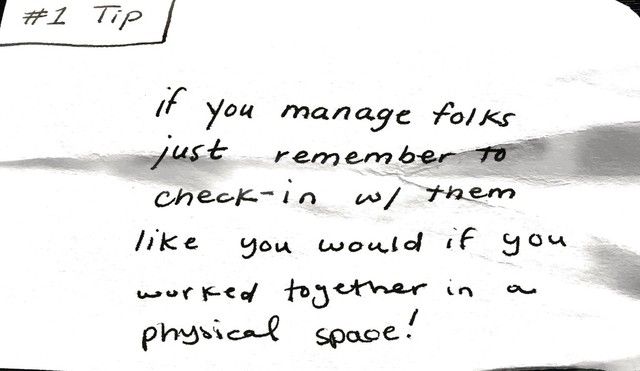 #1 Tip
if you manage folks
just remember to
check-in w/ them
like you would if you
worked together in a
physical space!